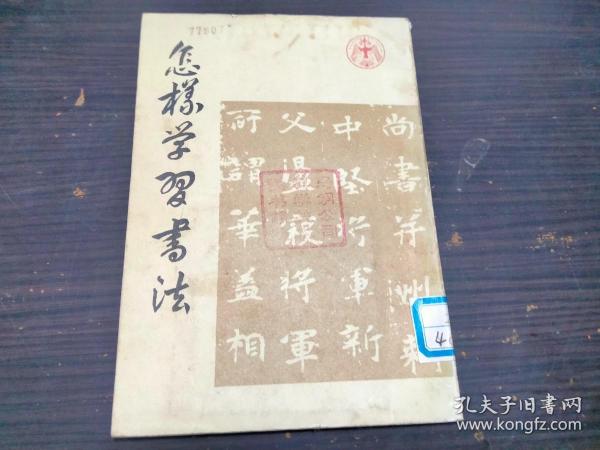 77807
怎样学習书法
尚書并州刺
中坚将軍新
父温穀将軍
所謂華蓋相
4
孔夫子旧书网
www.kongfz.com